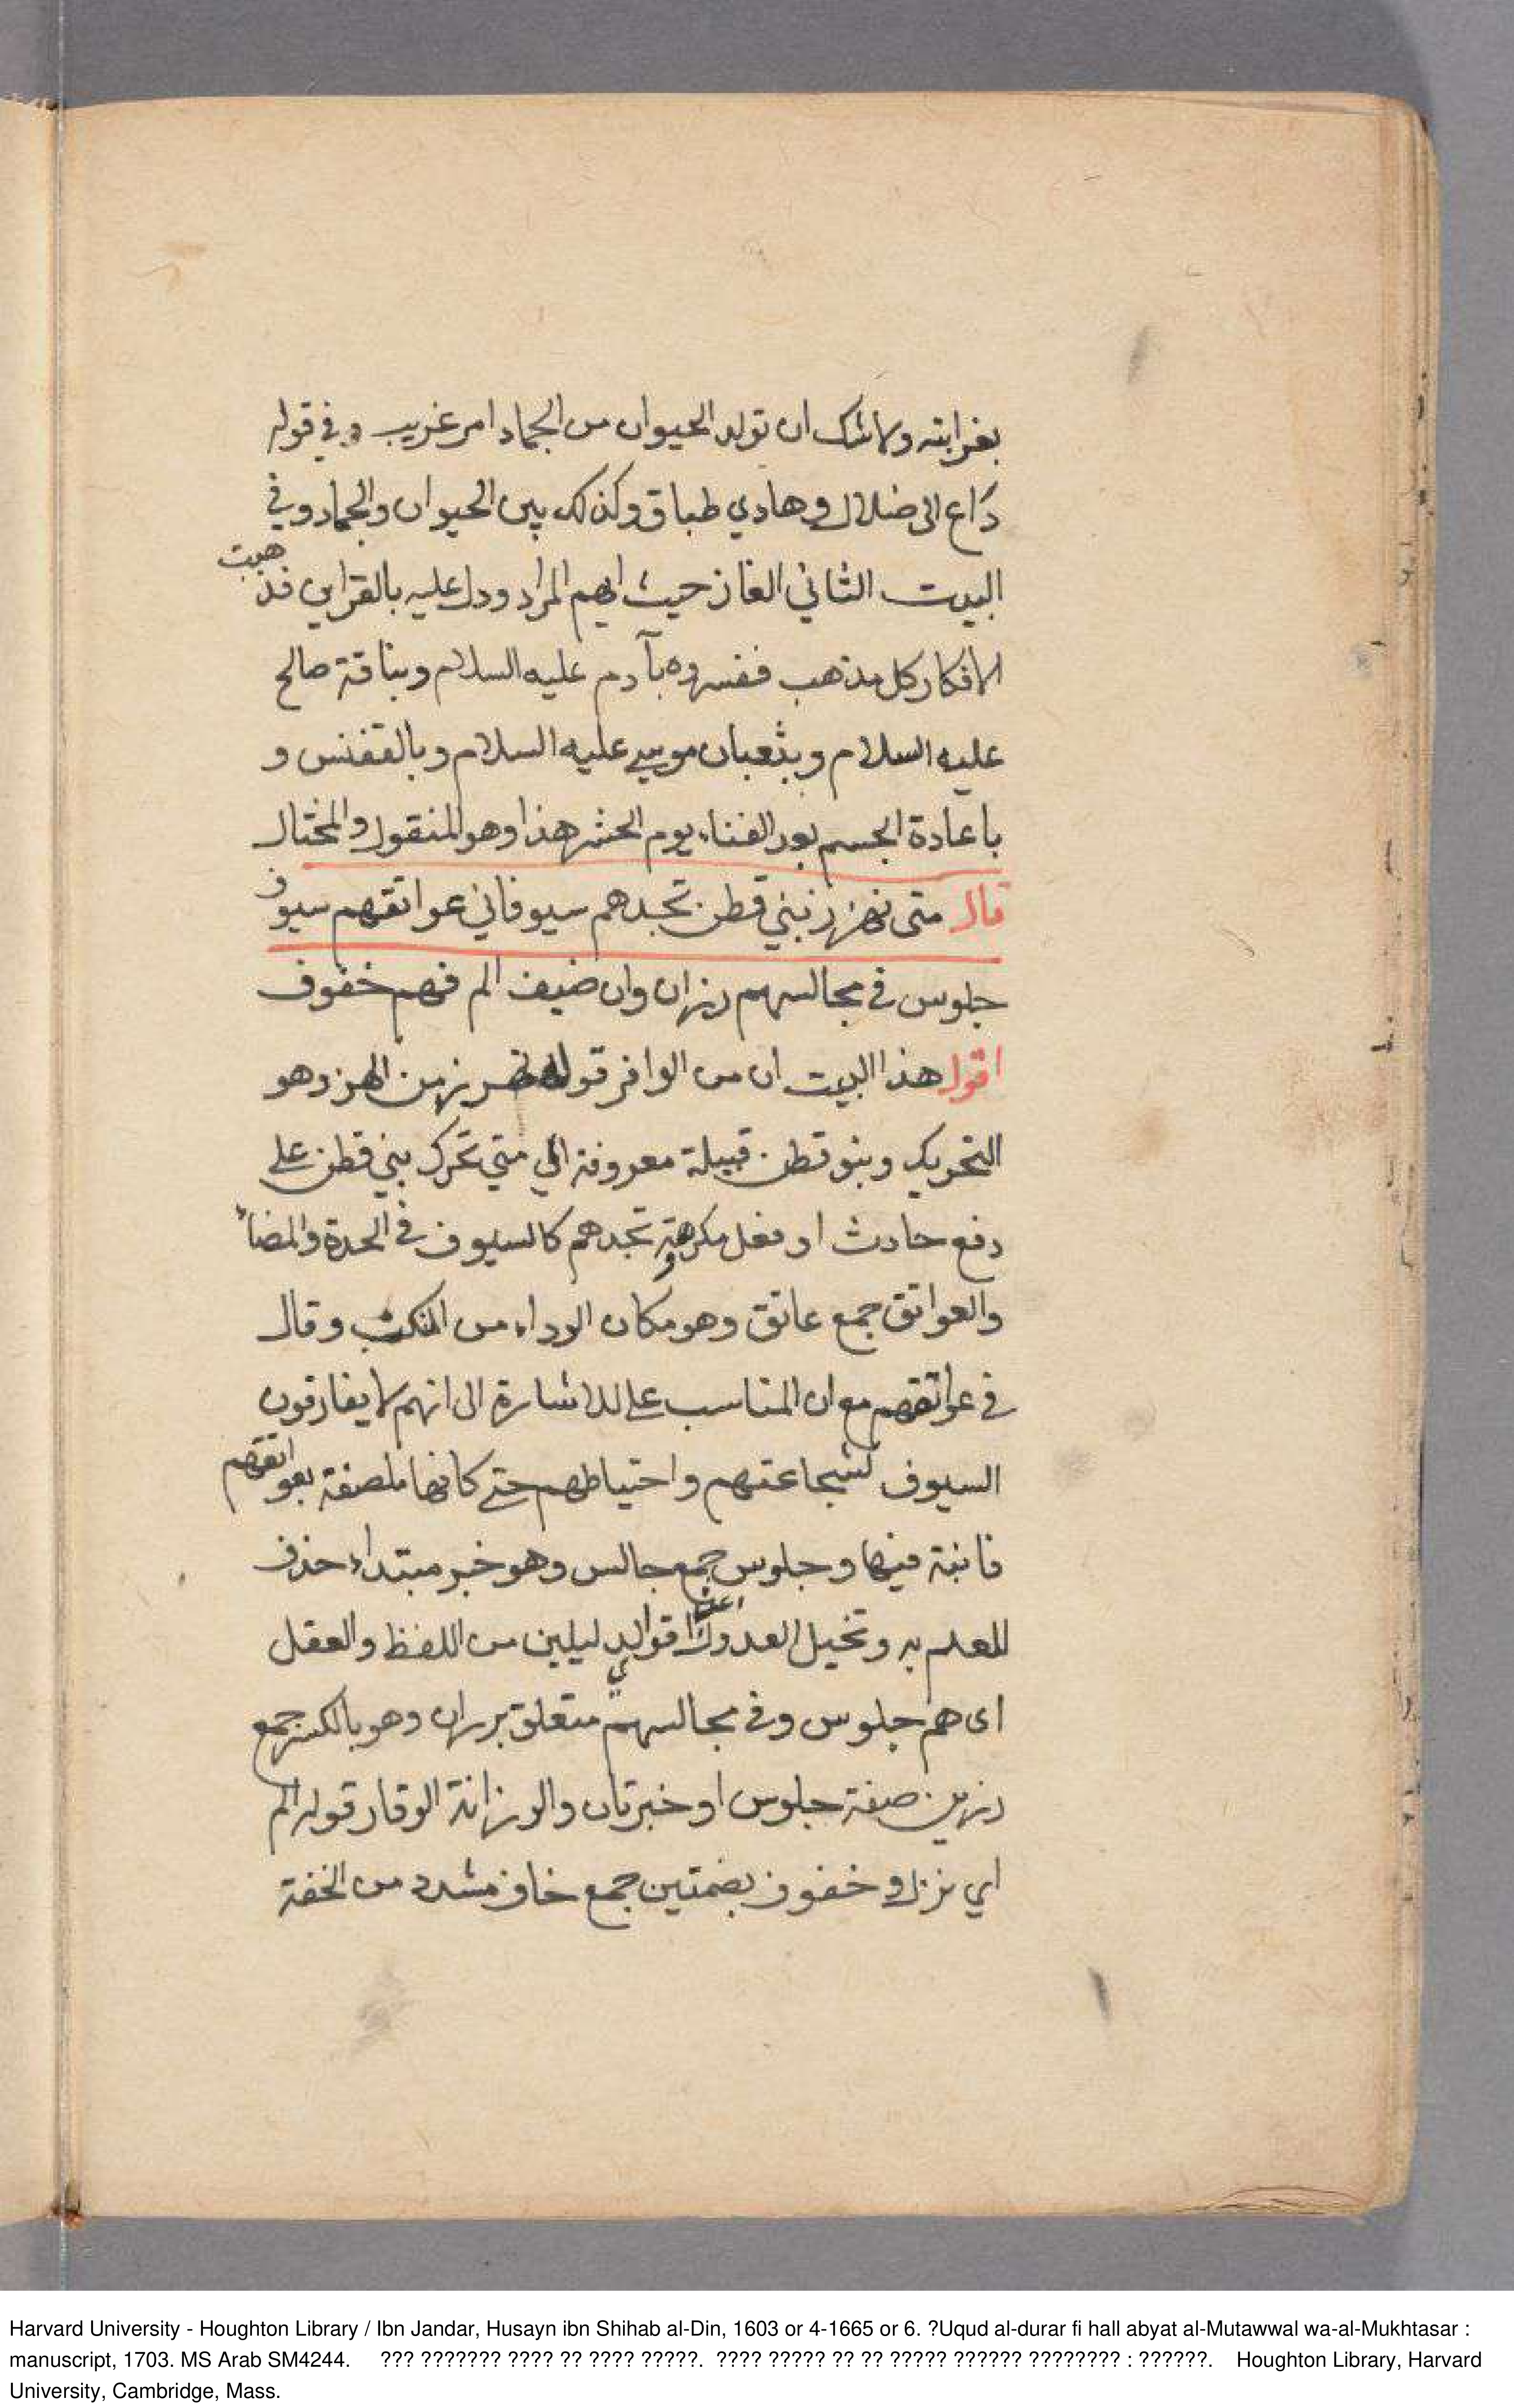 بغرابته ولا شك ان تولد الحيوان من الجماد امر غريب وفي قوله
داع الى ضلال وهادي طباق وكذلك بين الحيوان والجماد وفي
البيت الثاني الغاز حيث ابهم المراد ودل عليه بالقراين فذهبت
الافكار كل مذهب ففسروه بآدم عليه السلام وبناقة صالح
عليه السلام وبثعبان موسى عليه السلام وبالققنس و
باعادة الجسم بعد الفناء يوم الحشر هذا وهو المنقول والمختار
قال متى تهزز بني قطن تجدهم سيوفا في عواتقهم سيوف
جلوس في مجالسهم رزان وان ضيف الم فهم خفوف
اقول هذا البيت ان من الوافر قوله تهزز من الهز وهو
التحريك وبنو قطن قبيلة معروفة اي متي تحرك بني قطن علي
دفع حادث او فعل مكرهة تجدهم كالسيوف في الحدة والمضاء
والعواتق جمع عاتق وهو مكان الرداء من المنكب وقال
في عواتقهم مع ان المناسب على للاشارة الى انهم لا يفارقون
السيوف لشجاعتهم واحتياطهم حتى كانها ملصقة بعواتقهم
نابتة فيها وجلوس جمع جالس وهو خبر مبتداء حذف
للعلم به وتخيل العدول الى اقوى الدليلين من اللفظ والعقل
اى هم جلوس وفي مجالسهم متعلق برزان وهو بالكسر جمع
رزين صفة جلوس او خبر ثان والرزانة الوقار قوله الم
اي نزل وخفوف بضمتين جمع خاف مشدد من الخفة
Harvard University - Houghton Library / Ibn Jandar, Husayn ibn Shihab al-Din, 1603 or 4-1665 or 6. ?Uqud al-durar fi hall abyat al-Mutawwal wa-al-Mukhtasar :
manuscript, 1703. MS Arab SM4244. ??? ??????? ???? ?? ???? ?????. ???? ????? ?? ?? ????? ?????? ???????? : ??????. Houghton Library, Harvard
University, Cambridge, Mass.